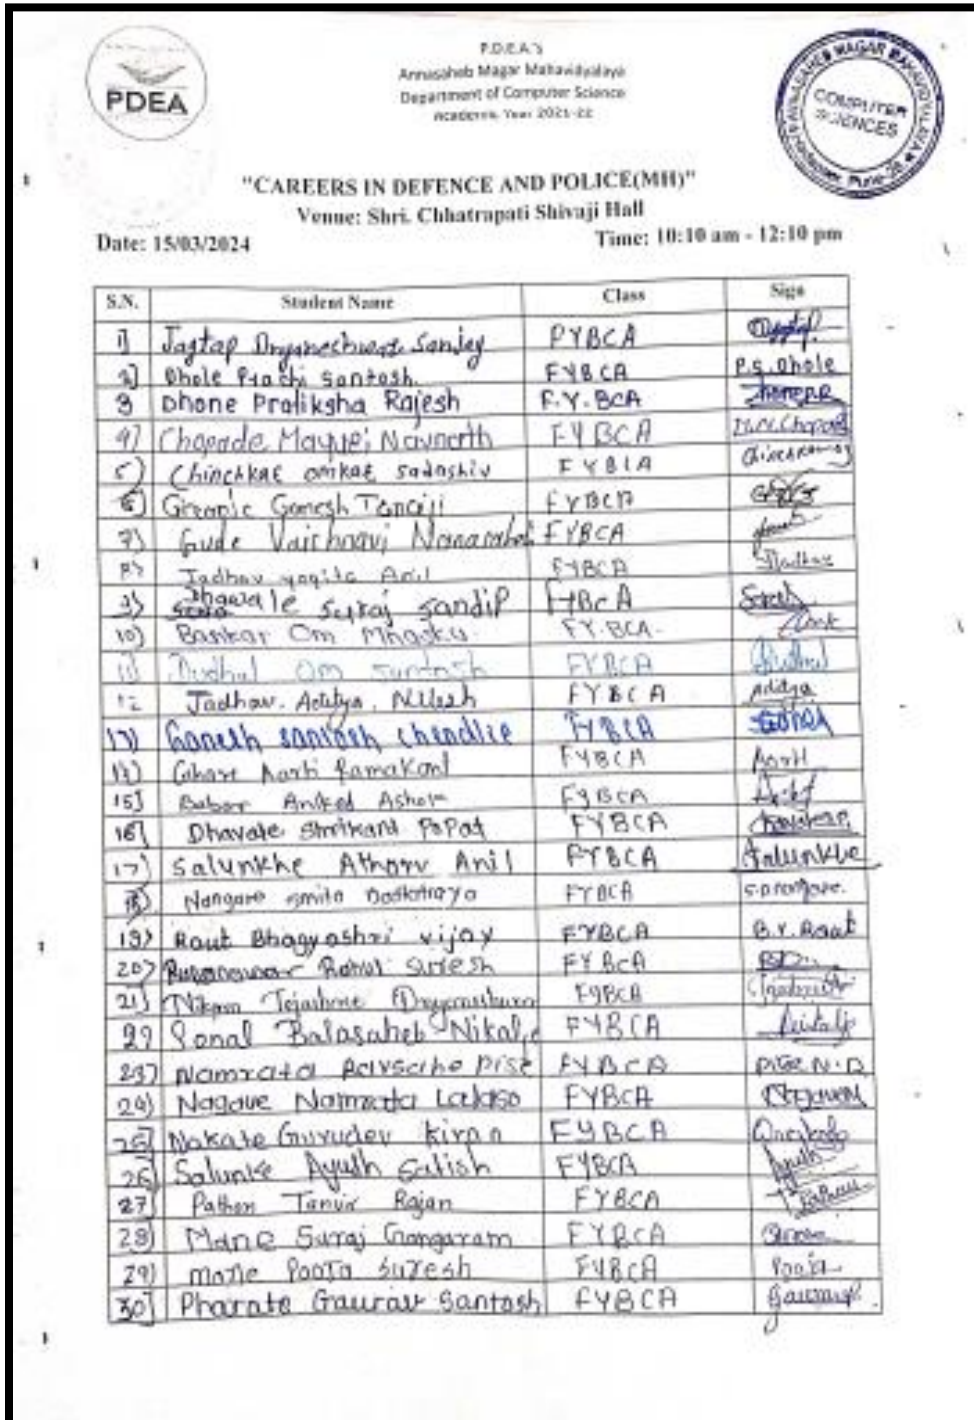 PDEA
P.D.E.A.'s
Annasaheb Magar Mahavidyalaya
Department of Computer Science
Academic Year 2021-22
COMPUTER
SCIENCES
"CAREERS IN DEFENCE AND POLICE(MH)"
Venue: Shri. Chhatrapati Shivaji Hall
Date: 15/03/2024 Time: 10:10 am - 12:10 pm
S.N. Student Name Class Sign
1) Jagtap Sanjay FYBCA
2) Dhole Prachi Santosh. FYBCA P.S. Dhole
3 Dhone Pratiksha Rajesh F.Y.BCA
4) Chopade Mayuri Navnath FYBCA
5) Chinchkar omkar sadashiv FYBCA
6) Ganesh Tanaji FYBCA
7) Gude Vaishnavi FYBCA
8) Jadhav yogita Anil FYBCA Jadhav
9) suraj sandip FYBCA
10) Bankar Om Mhasku. FY.BCA
11) Dudhal Om santosh FYBCA
12 Jadhav. Aditya. Nilesh FYBCA Aditya
13) Ganesh santosh FYBCA
14) Aarti Ramakant FYBCA Aarti
15] Babar Aniket Ashok FYBCA
16] Dhavale Shrikant Popat FYBCA
17) Salunkhe Atharv Anil FYBCA Salunkhe
18). Nangare smita Dattatraya FYBCA
19) Raut Bhagyashri vijay FYBCA B.V. Raut
20) Rahul Suresh FYBCA
21) Nikam FYBCA
22 Sonal Balasaheb Nikalje FYBCA
23) Namrata Pise FYBCA Pise N.
24) Nagave Namrata Lalaso FYBCA
25] Nakate Gurudev Kiran FYBCA
26) Salunke Ayush Satish FYBCA Ayush
27) Pathan Tanvir Rajan FYBCA
28) Mane Suraj Gangaram FYBCA
29) mane Pooja Suresh FYBCA Pooja
30] Pharate Gaurav Santosh FYBCA